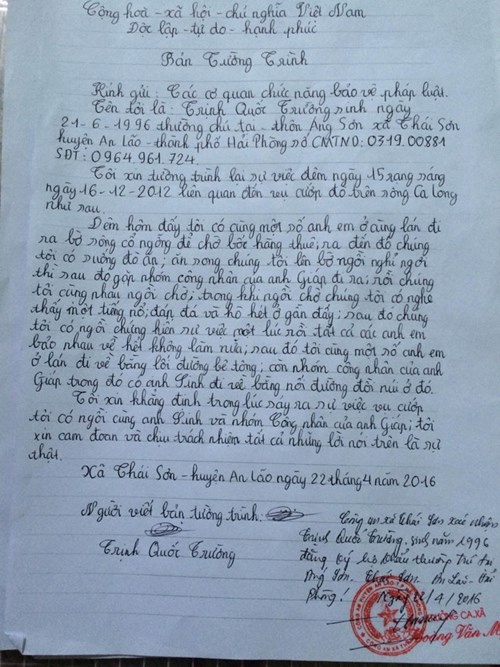 Cộng hoà - xã hội - chủ nghĩa Việt Nam
Độc lập - tự do - hạnh phúc
Bản Tường Trình
Kính gửi: Các cơ quan chức năng bảo vệ pháp luật.
Tên tôi là: Trịnh Quốc Trường sinh ngày
21-6-1996 thường chú tại - thôn Áng Sơn xã Thái Sơn
huyện An Lão - thành phố Hải Phòng số CMTND: 0319.00881
SĐT: 0964.961.724.
Tôi xin tường trình lại sự việc đêm ngày 15 rạng sáng
ngày 16-12-2012 liên quan đến vụ cướp đò trên sông Ca Long
như sau.
Đêm hôm đấy tôi có cùng một số anh em ở cùng lán đi
ra bờ sông cổ ngỗng để chờ bốc hàng thuê; ra đến đó chúng
tôi có xuống đò ăn; ăn song chúng tôi lên bờ ngồi nghỉ ngơi
thì sau đó gặp nhóm công nhân của anh Giáp đi ra; rồi chúng
tôi cùng nhau ngồi chờ; trong khi ngồi chờ chúng tôi có nghe
thấy một tiếng nổ; đán đá và hò hét ở gần đấy; sau đó chúng
tôi có ngồi chứng kiến sự việc một lúc rồi tất cả các anh em
bảo nhau về hết không làm nữa; sau đó tôi cùng một số anh em
ở lán đi về bằng lối đường bê tông; còn nhóm công nhân của anh
Giáp trong đó có anh Sinh đi về bằng lối đường đồi núi ở đó.
Tôi xin khẳng định trong lúc sảy ra sự việc vụ cướp
tôi có ngồi cùng anh Sinh và nhóm Công nhân của anh Giáp; tôi
xin cam đoan và chịu trách nhiệm tất cả những lời nói trên là sự
thật.
Xã Thái Sơn - huyện An Lão ngày 22 tháng 4 năm 2016
Người viết bản tường trình.
Trịnh Quốc Trường
Công an xã Thái Sơn xác nhận
Trịnh Quốc Trường, sinh năm 1996
đăng ký hộ khẩu thường trú tại
Áng Sơn, Thái Sơn, An Lão - Hải
Phòng! Ngày 22/4/2016
CA XÃ
Hoàng Văn